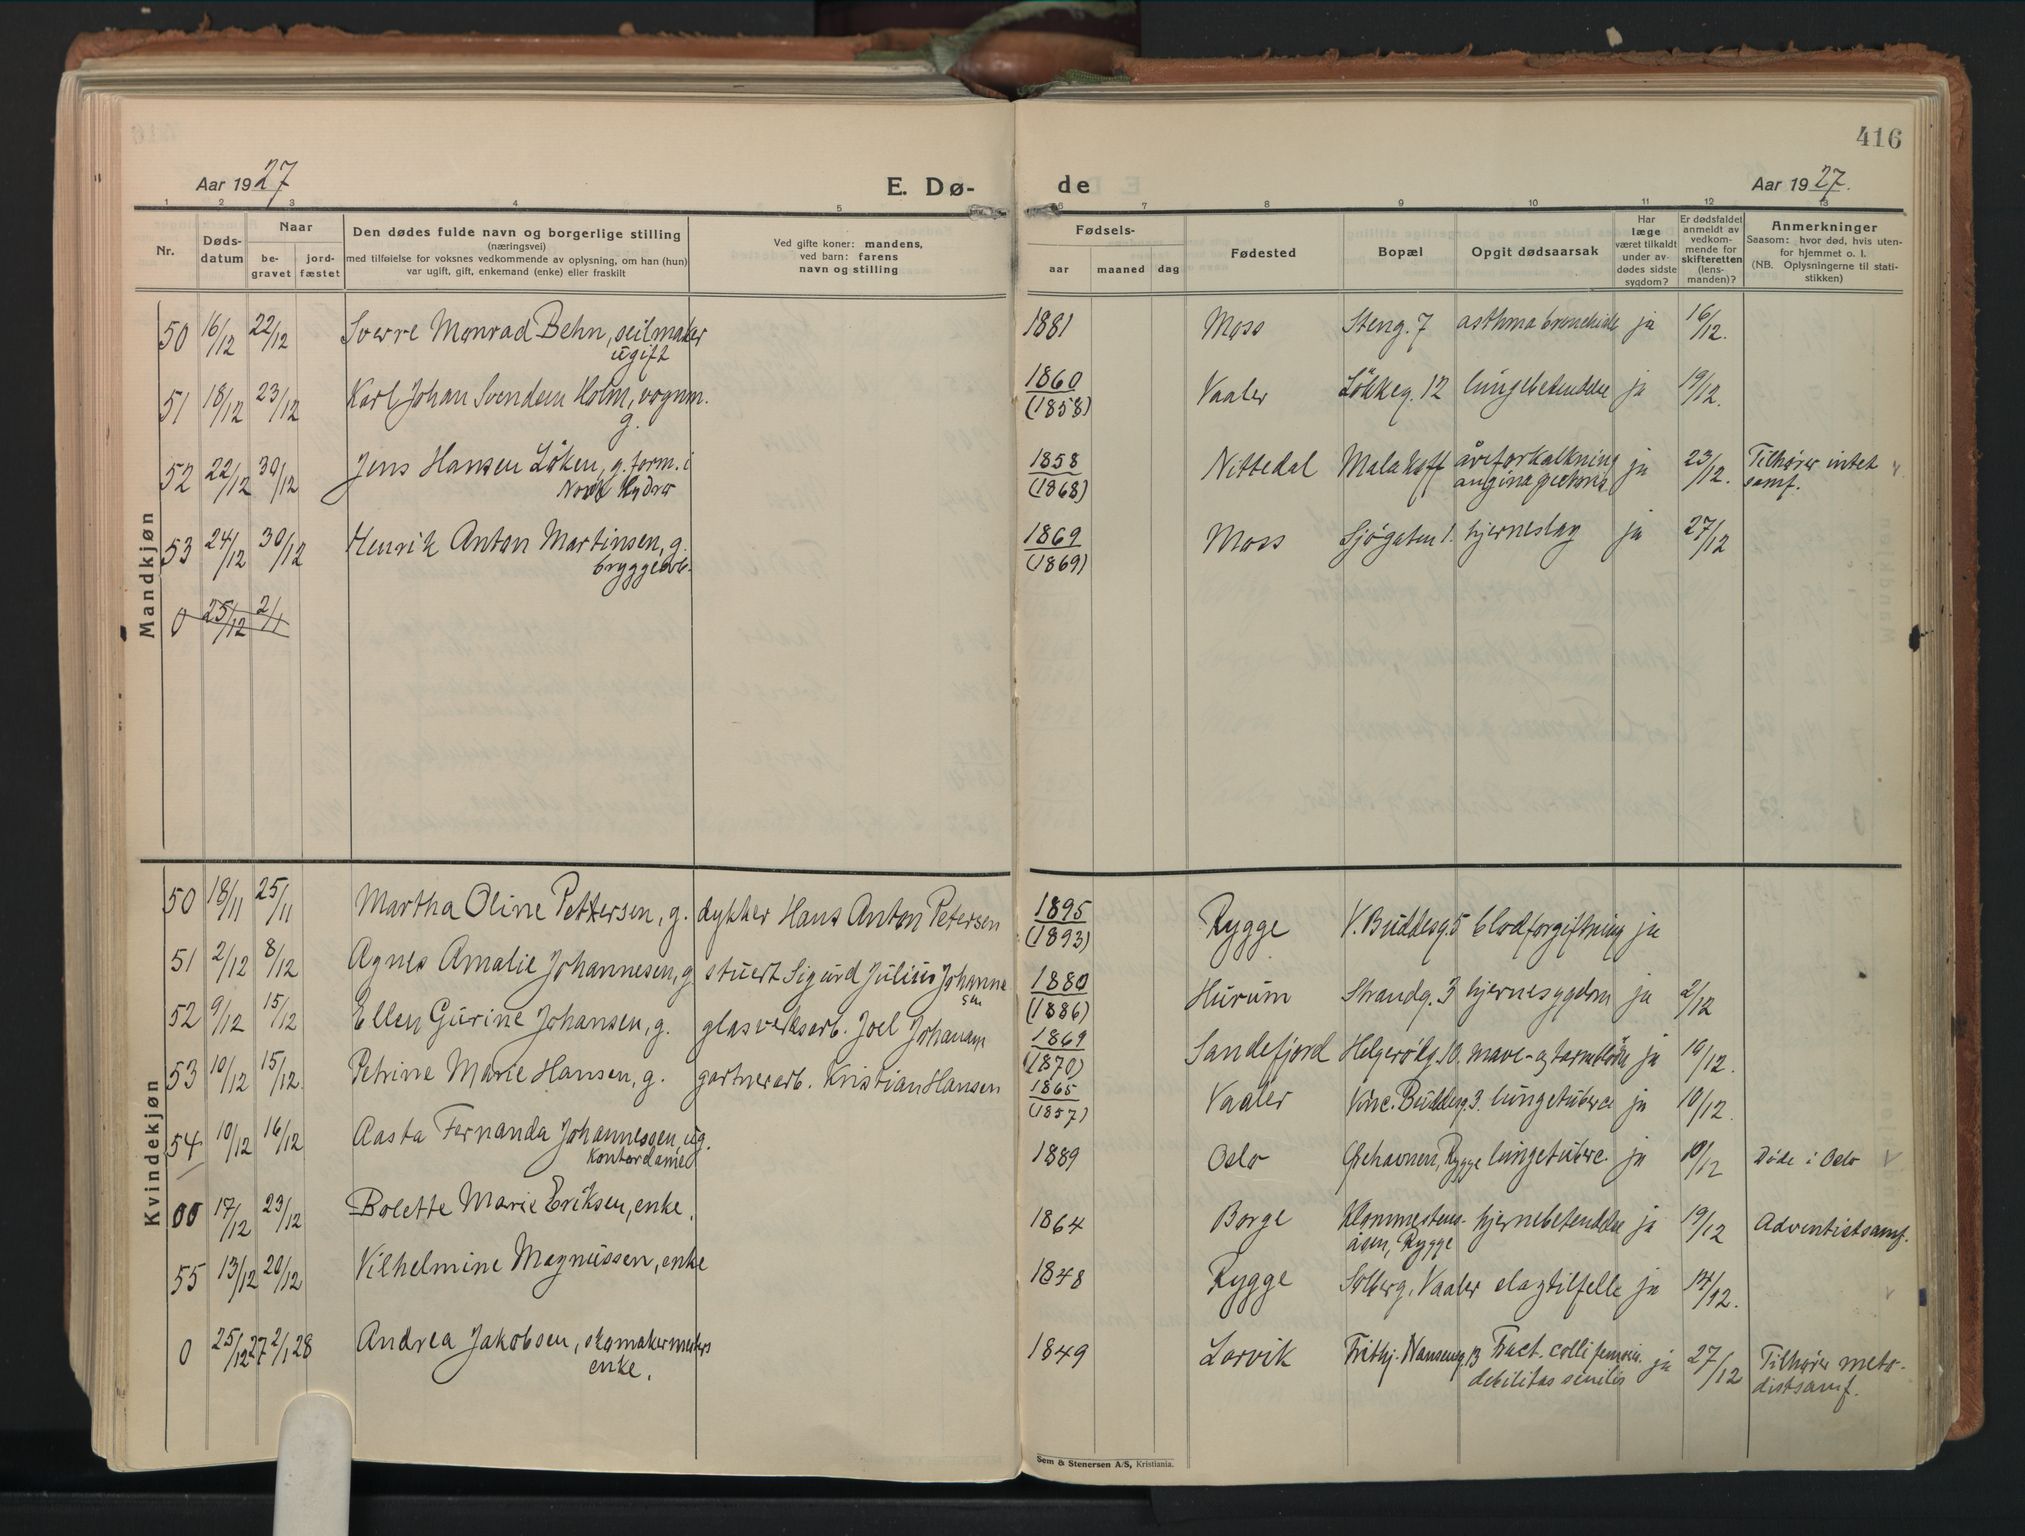 416
Aar 1927
E. Dø-
de
Aar 1927.
1 2 3 4 5 6 7 8 9 10 11 12 13
Nr.
Døds-
datum
Naar
be-
gravet
jord-
fæstet
Den dødes fulde navn og borgerlige stilling
(næringsvei)
med tilføielse for voksnes vedkommende av oplysning, om han (hun)
var ugift, gift, enkemand (enke) eller fraskilt
Ved gifte koner: mandens,
ved barn: farens
navn og stilling
Fødsels-
aar maaned dag
Fødested
Bopæl
Opgit dødsaarsak
Har
læge
været tilkaldt
under av-
dødes sidste
sygdom?
Er dødsfaldet
anmeldt av
vedkom-
mende for
skifteretten
(lens-
manden)?
Anmerkninger
Saasom: hvor død, hvis uten-
for hjemmet o. l.
(NB. Oplysningerne til stati-
stikken)
Mandkjøn
50 16/12 22/12 Sverre Monrad Behn, seilmaker 1881 Moss Steng. 7 asthma bronchiale ja 16/12.
ugift
51 18/12 23/12 Karl Johan Svendsen Holm, vognm. 1860 Vaaler Løkkeg. 12 lungebetendelse ja 19/12.
g. (1858)
52 22/12 30/12 Jens Hansen Löken, g. form. i 1858 Nittedal Malakoff åreforkalkning ja 23/12. Tilhører intet
Norsk Hydro (1868) angina pectoris samf.
53 24/12 30/12 Henrik Anton Martinsen, g. 1869 Moss Sjøgaten 1. hjerneslag ja 27/12
bryggearb. (1869)
0 25/12 2/1
Kvindekjøn
50 18/11 25/11 Martha Oline Pettersen, g. dykker Hans Anton Petersen 1895 Rygge V. Buddesg. 5 blodforgiftning ja
(1893)
51 2/12 8/12 Agnes Amalie Johannesen, g. stuert Sigurd Julius Johanne 1880 Hurum Strandg. 3 hjernesygdom ja 2/12
sen (1886)
52 9/12 15/12 Ellen Gurine Johansen, g. glasverksarb. Joel Johansen 1869 Sandefjord Helgerödg. 10. mave- og tarmblødn ja 10/12.
(1870)
53 10/12 15/12. Petrine Marie Hansen, g. gartnerarb. Kristian Hansen 1865 Vaaler Vinc. Buddesg. 3. lungetuberc ja 10/12.
(1857)
54 10/12 16/12 Aasta Fernanda Johannessen, ug. 1889 Oslo Ørehavnen, Rygge lungetuberc. ja 10/12 Døde i Oslo
Kontordame
00 17/12 23/12 Bolette Marie Eriksen, enke. 1864 Borge Klommestens- hjernebetendelse ja 19/12 Adventistsamf.
åsen, Rygge
55 13/12 20/12 Vilhelmine Magnussen, enke 1848 Rygge Solberg, Vaaler slagtilfelle ja 14/12.
0 25/12 27 2/1 28 Andrea Jakobsen, skomakermesters 1849 Larvik Frithj. Nanseng. 13 Fract. colli femoris. ja 27/12 Tilhører meto-
enke. debilitas senilis distsamf.
Sem & Stenersen A/S, Kristiania.